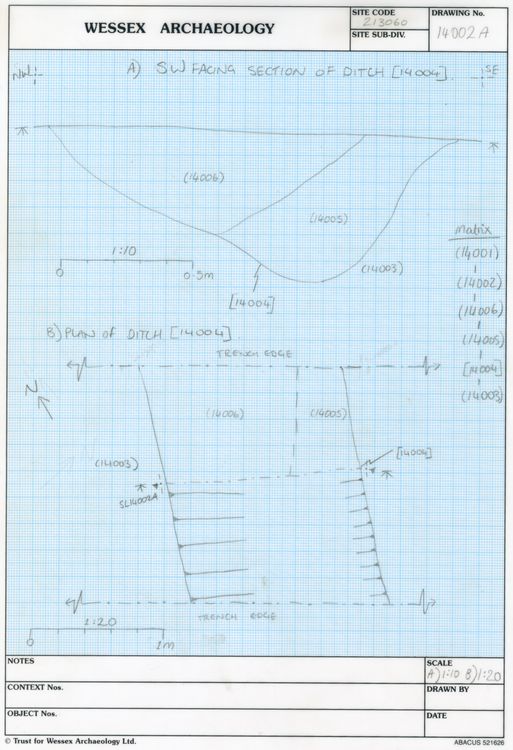 WESSEX ARCHAEOLOGY
SITE CODE
213060
SITE SUB-DIV.
DRAWING No.
14002A
NW
A) SW FACING SECTION OF DITCH [14004].
SE
(14006)
(14005)
(14003)
[14004]
1:10
0
0.5m
Matrix
(14001)
(14002)
(14006)
(14005)
[14004]
(14003)
B) PLAN OF DITCH [14004].
TRENCH EDGE
N
(14006)
(14005)
[14004]
(14003)
SL14002A
TRENCH EDGE
1:20
0
1m
NOTES
CONTEXT Nos.
OBJECT Nos.
SCALE
A) 1:10 B) 1:20
DRAWN BY
DATE
© Trust for Wessex Archaeology Ltd.
ABACUS 521626